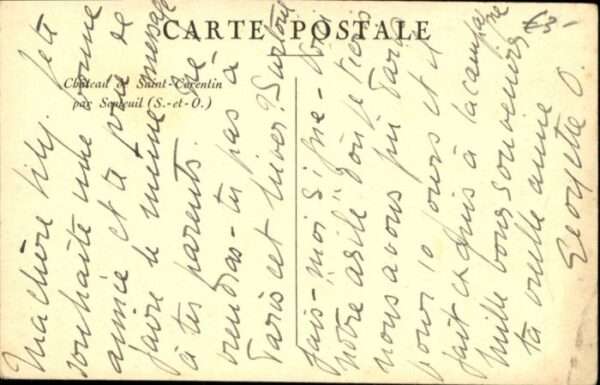 CARTE POSTALE
Château de Saint-Corentin
par Septeuil (S.-et-O.)
Ma chère Lily. Je te
souhaite une bonne
année et te prie de
faire le même message
à tes parents. Ne
viendras-tu pas à
Paris cet hiver? Surtout
fais-moi signe - Voici
notre asile d'où je viens
nous avons fui Paris
pour 10 jours et il
fait exquis à la campagne
mille bons souvenirs
ta vieille amie
Georgette O.